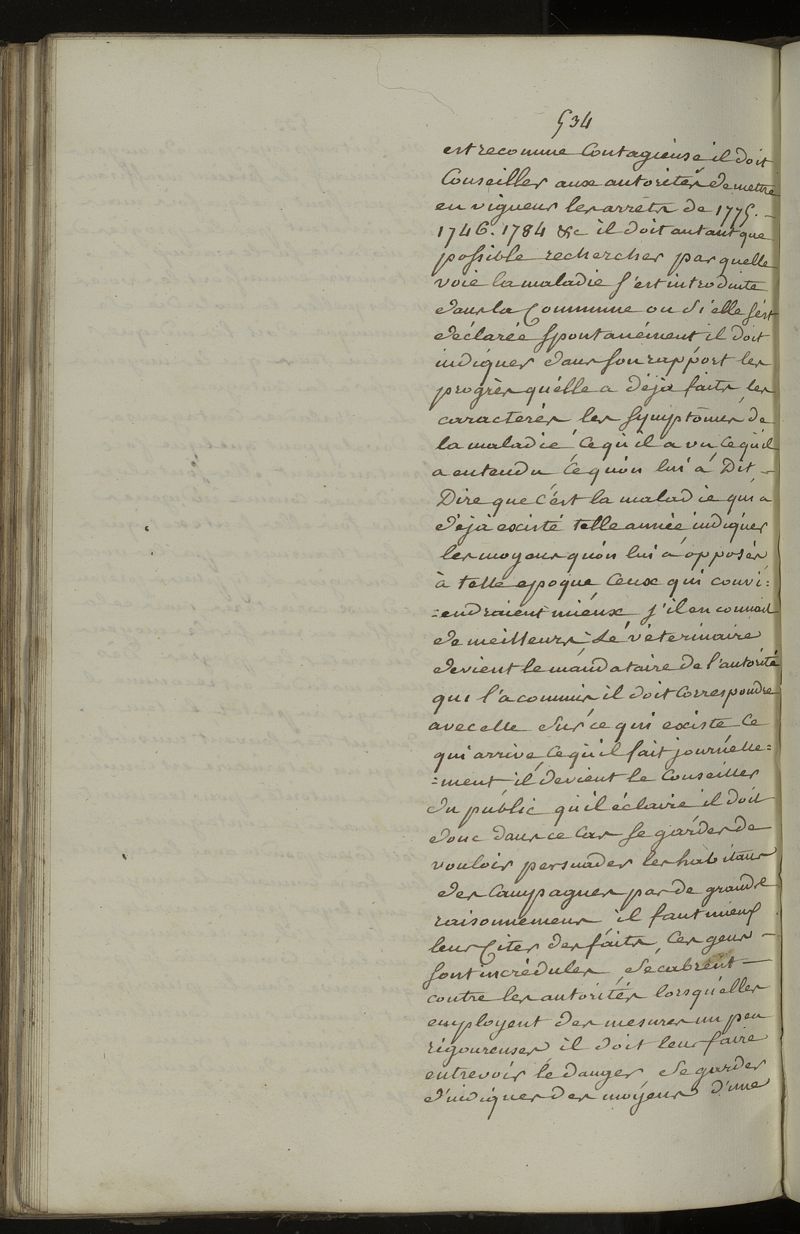 534
est reconnue Contagieuse il doit
Conseiller aux autorités de mettre
en vigueur les arrêts de 1775. –
1746. 1784 &c il doit autant que
possible rechercher par quelle
voie la maladie s'est introduite
dans la Commune ou si elle s'est
déclarée spontanément il doit
indiquer dans son rapport les
progrès qu'elle a déja faits les
caracteres les symptômes de
la maladie Ce qu'il a vu Ce qu'il
a entendu Ce qu'on lui a Dit –
Dire que c'est la maladie qui a
déja existé telle année indiquer
les moyens qu'on lui a opposés
à telle epoque Ceux qui convi:
:endraient mieux s'il en connait
de meilleurs Le véterinaire
devient le mandataire de l'autorité
qui l'a commis il doit Correspondre
avec elle Sur ce qui existe Ce
qui arrive, Ce qu'il fait journelle:
:ment il devient le Conseiller
du public qu'il éclaire il doit
donc dans ce Cas Se garder de
vouloir persuader les habitans
des Campagnes par de grands
raisonnemens, il faut mieux
leur Citer des faits, Ces gens –
sont incrédules, Se cabrent –
contre les autorités lorsqu'elles
employent des mesures un peu
rigoureuses il doit leur faire
entrevoir le danger, Se garder
d'indiquer des moyens d'une